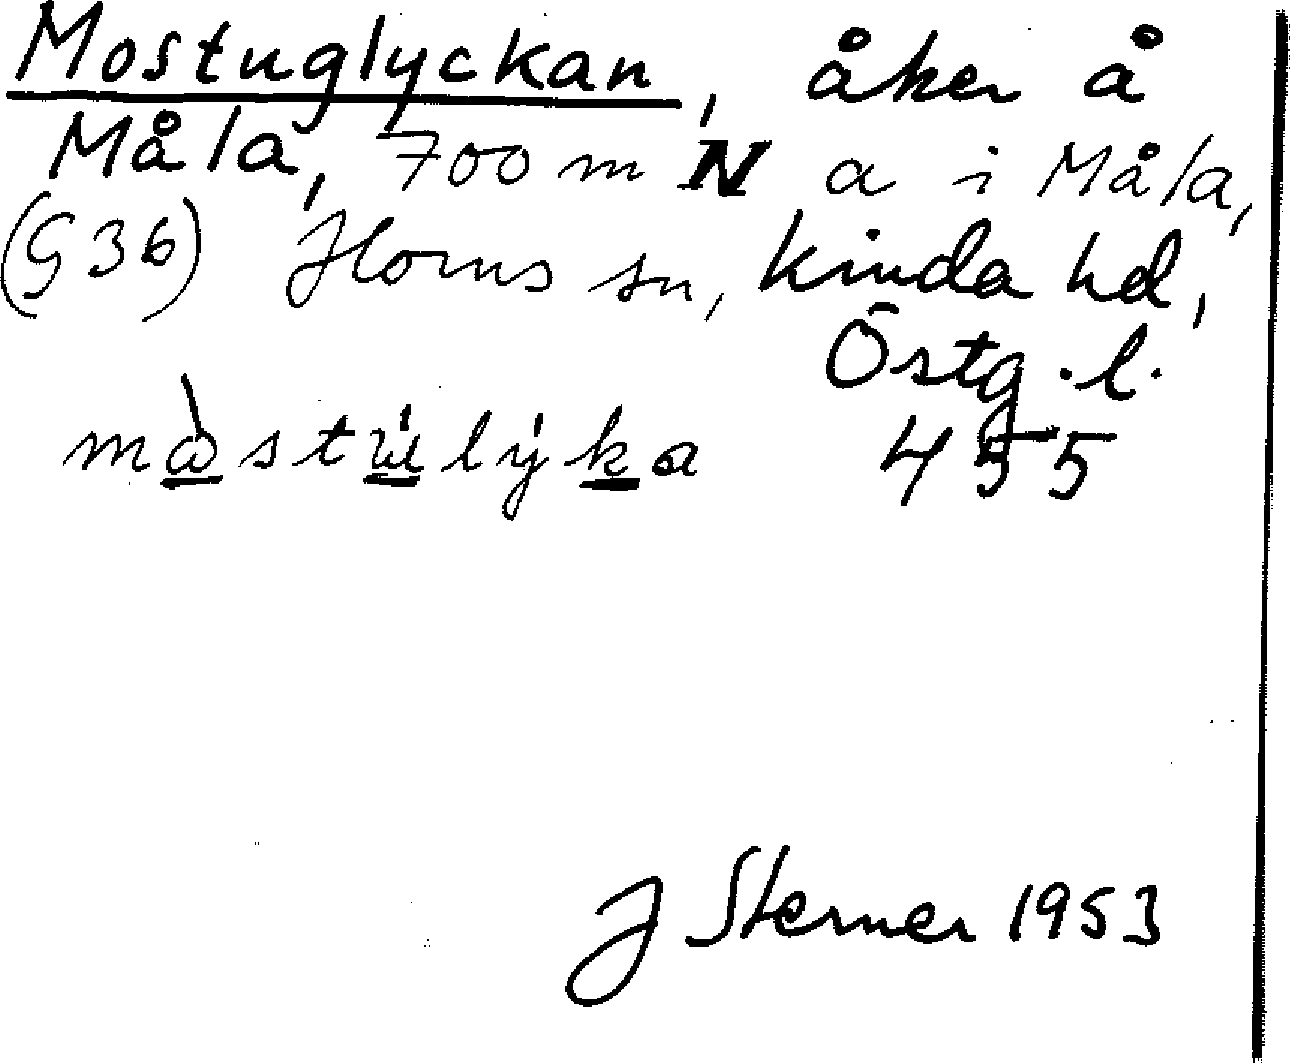 Mostuglyckan, åker å
Måla, 700 m N a i Måla,
(§36) Horns sn, Kinda hd,
Östg.l.
mòstúlýka 455
J Sterner 1953